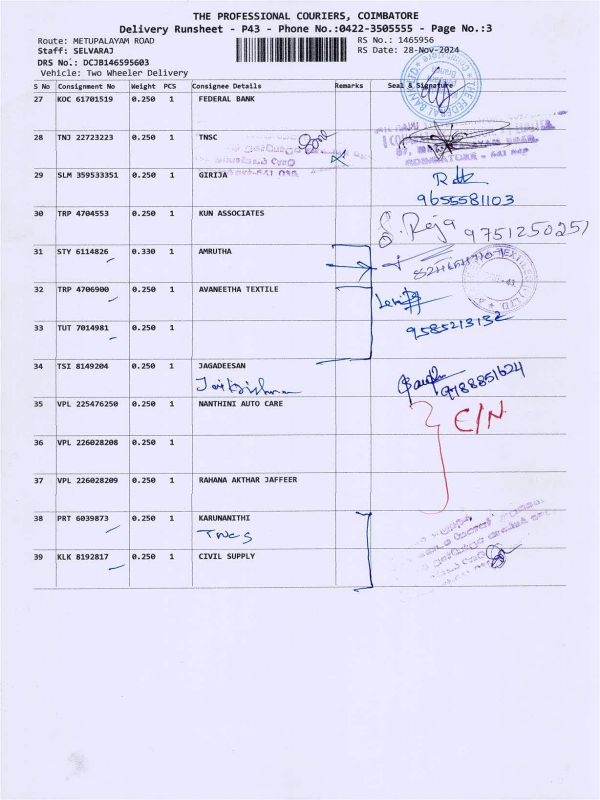 THE PROFESSIONAL COURIERS, COIMBATORE
Delivery Runsheet - P43 - Phone No.:0422-3505555 - Page No.:3
Route: METUPALAYAM ROAD
RS No.: 1465956
Staff: SELVARAJ
RS Date: 28-Nov-2024
DRS No.: DCJB146595603
Vehicle: Two Wheeler Delivery
S No Consignment No Weight PCS Consignee Details Remarks Seal & Signature
27 KOC 61701519 0.250 1 FEDERAL BANK
28 TNJ 22723223 0.250 1 TNSC
29 SLM 359533351 0.250 1 GIRIJA
9655581103
30 TRP 4704553 0.250 1 KUN ASSOCIATES
S. Roja 9751250251
31 STY 6114826 0.330 1 AMRUTHA
32 TRP 4706900 0.250 1 AVANEETHA TEXTILE
33 TUT 7014981 0.250 1
9585213132
34 TSI 8149204 0.250 1 JAGADEESAN
9788851624
35 VPL 225476250 0.250 1 NANTHINI AUTO CARE
36 VPL 226028208 0.250 1
37 VPL 226028209 0.250 1 RAHANA AKTHAR JAFFEER
38 PRT 6039873 0.250 1 KARUNANITHI
39 KLK 8192817 0.250 1 CIVIL SUPPLY